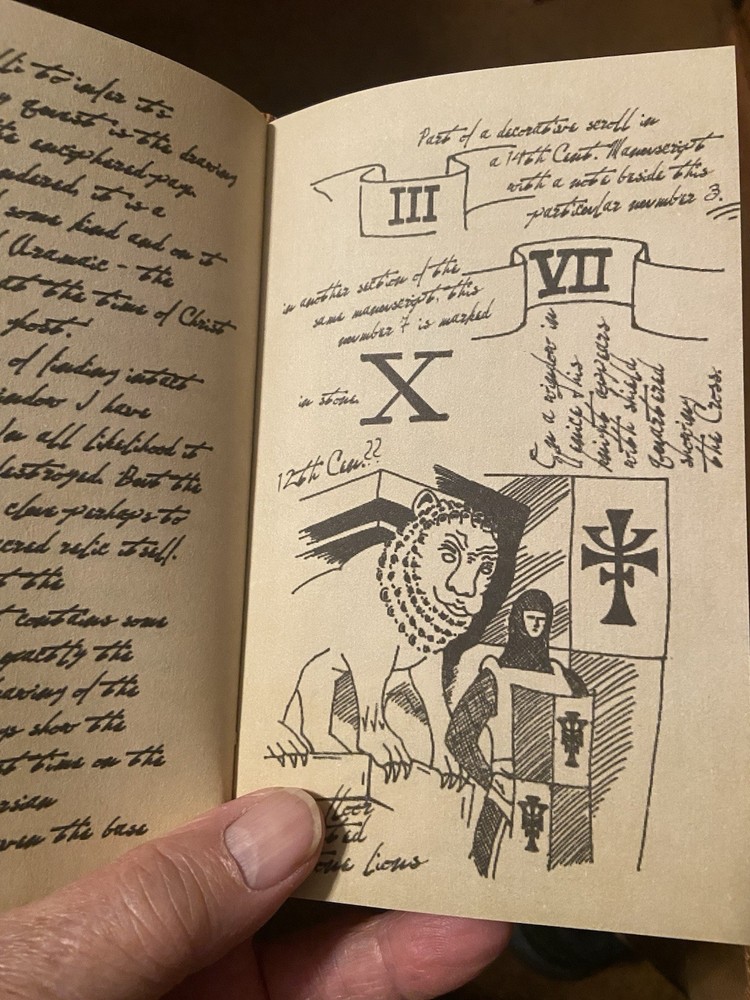 to infer its
quest is the drawing
enciphered page
it is a
some kind and on it
Aramaic - the
at the time of Christ
ghost.
of finding intact
window I have
In all likelihood it
destroyed. But the
clue perhaps to
sacred relic itself.
the
contains some
exactly the
drawing of the
show the
time on the
even the base
Part of a decorative scroll in
a 14th Cent. Manuscript
with a note beside this
particular number 3.
III
VII
in another section of the
same manuscript, this
number 7 is marked
in stone
X
On a window in
Venice this
knight appears
with shield
quartered
showing
the Cross.
12th Cen.??
floor
Lions